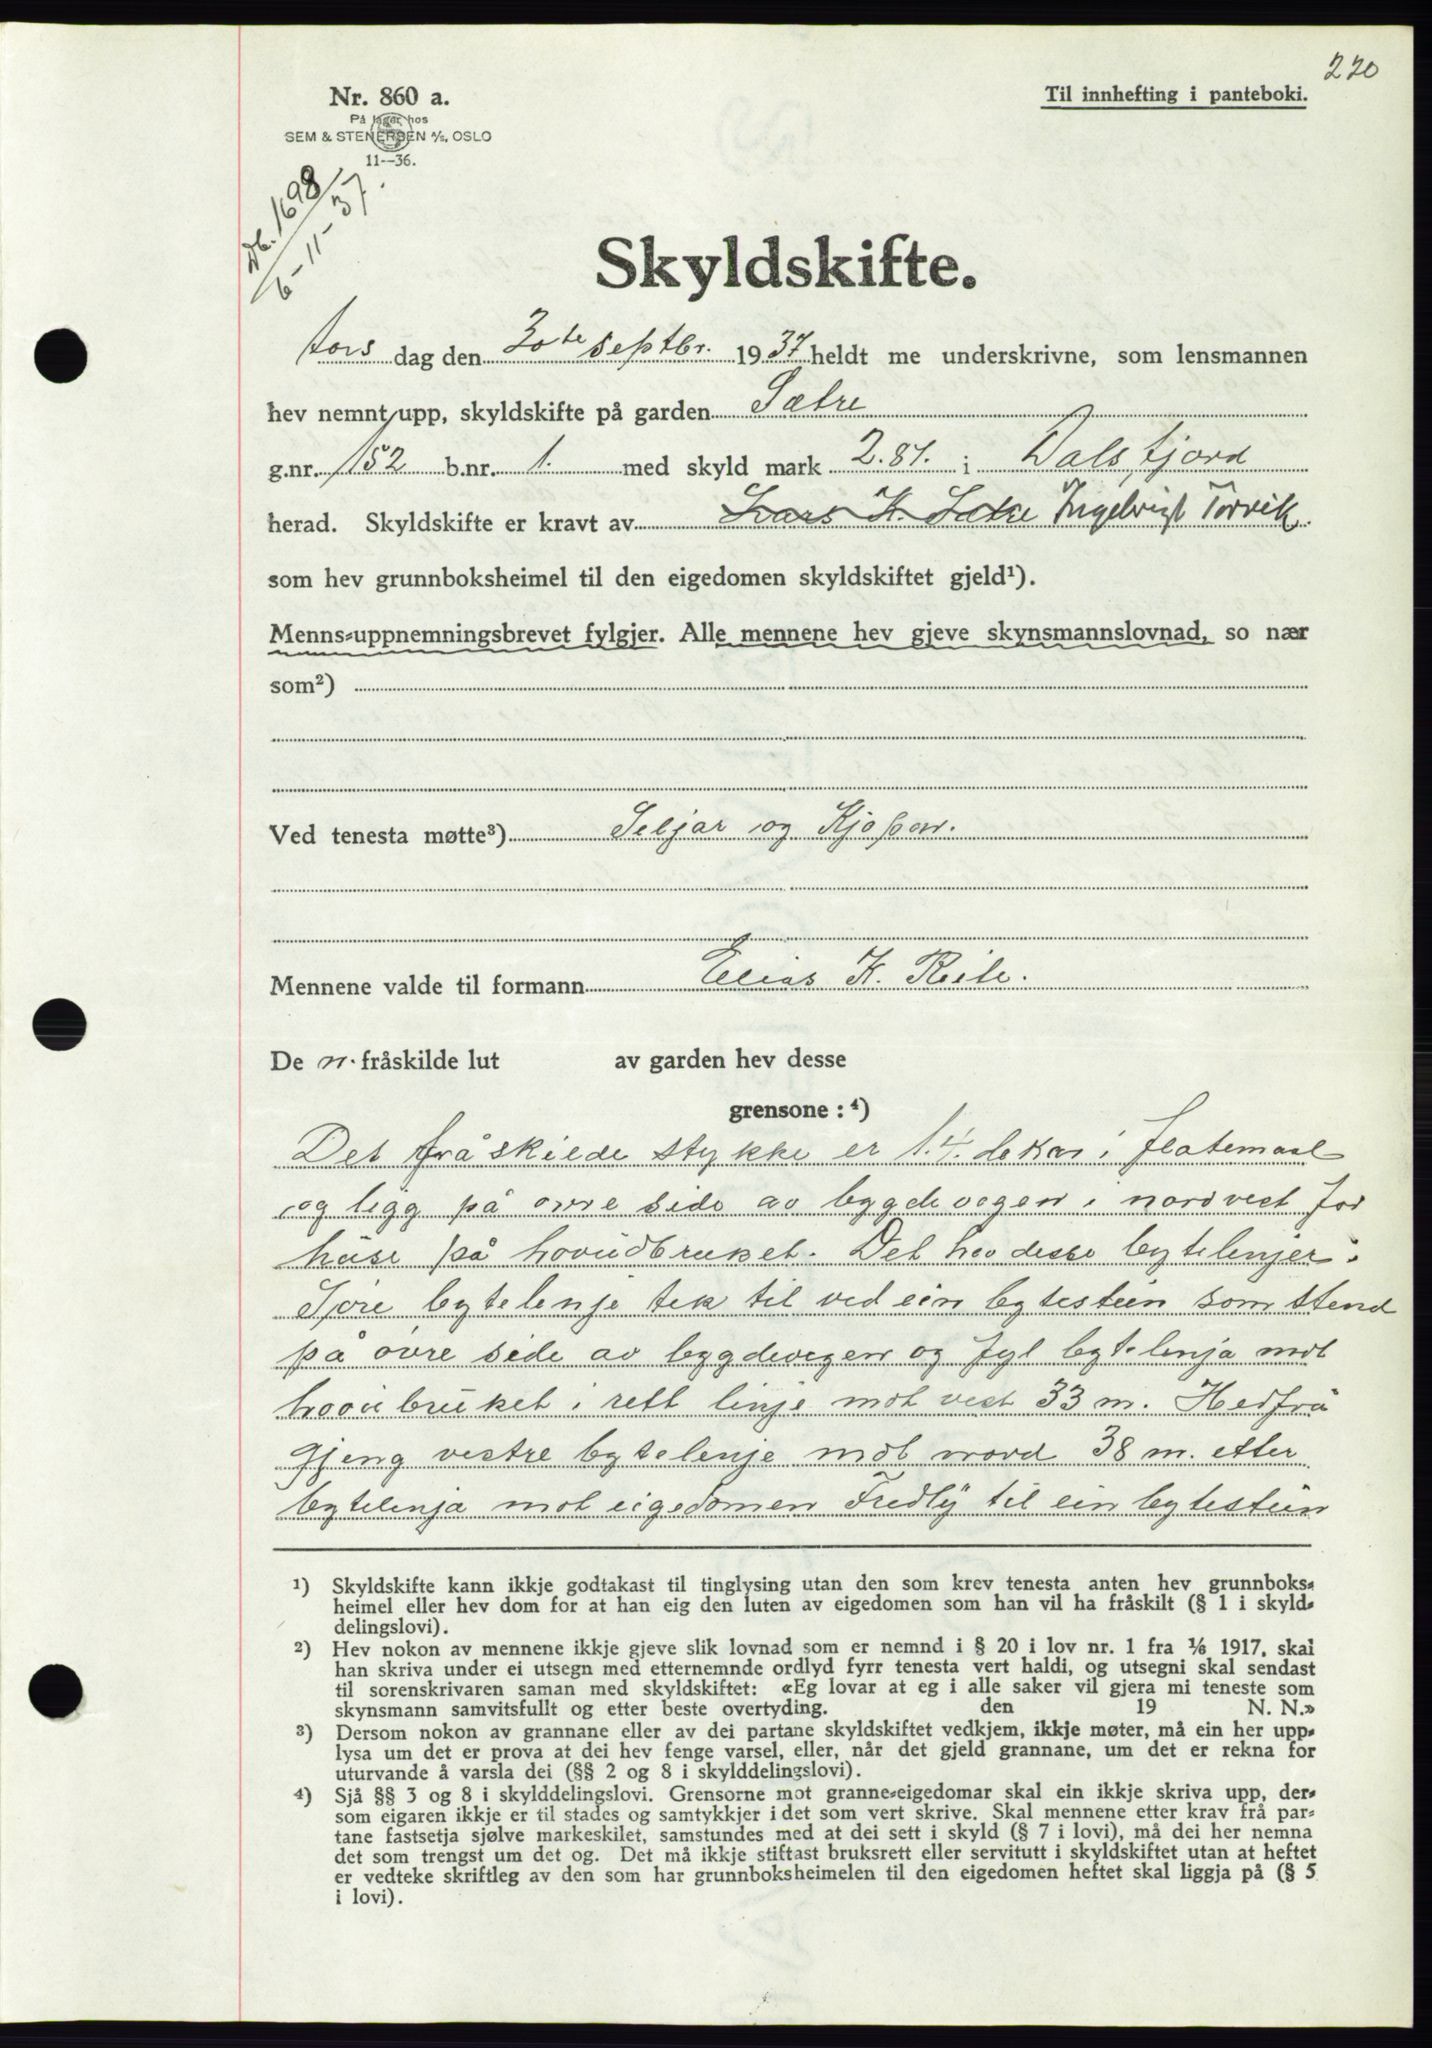 220
Nr. 860 a.
Til innhefting i panteboki.
På lager hos
SEM & STENERSEN A/S, OSLO
11--36.
Db. 1698
6-11-37.
Skyldskifte.
Tors dag den 30te septbr. 1937 heldt me underskrivne, som lensmannen
hev nemnt upp, skyldskifte på garden Sætre
g.nr. 152 b.nr. 1. med skyld mark 2.81. i Dalsfjord
herad. Skyldskifte er kravt av Lars K. Sætre Ingebrigt Torvik.
som hev grunnboksheimel til den eigedomen skyldskiftet gjeld¹).
Menns-uppnemningsbrevet fylgjer. Alle mennene hev gjeve skynsmannslovnad, so nær
som²)
Ved tenesta møtte³) Seljar og Kjøpar.
Mennene valde til formann Elias K. Reite.
De n. fråskilde lut av garden hev desse
grensone: ⁴)
Det fråskilde stykke er 1.4. dekar i flatemaal
og ligg på øvre side av bygdevegen i nordvest for
huse på hovudbruket. Det hev desse bytelinjer:
Søre bytelenje tek til ved ein bytestein som stend
på øvre side av bygdevegen og fyl bytelenja mot
hovubruket i rett linje mot vest 33 m. Hedfrå
gjeng vestre bytelenje mot nord 38 m. etter
bytelenja mot eigedomen Fredly til ein bytestein
1) Skyldskifte kann ikkje godtakast til tinglysing utan den som krev tenesta anten hev grunnboks-
heimel eller hev dom for at han eig den luten av eigedomen som han vil ha fråskilt (§ 1 i skyld-
delingslovi).
2) Hev nokon av mennene ikkje gjeve slik lovnad som er nemnd i § 20 i lov nr. 1 fra 1/6 1917, skal
han skriva under ei utsegn med etternemnde ordlyd fyrr tenesta vert haldi, og utsegni skal sendast
til sorenskrivaren saman med skyldskiftet: «Eg lovar at eg i alle saker vil gjera mi teneste som
skynsmann samvitsfullt og etter beste overtyding. den 19 N. N.»
3) Dersom nokon av grannane eller av dei partane skyldskiftet vedkjem, ikkje møter, må ein her upp-
lysa um det er prova at dei hev fenge varsel, eller, når det gjeld grannane, um det er rekna for
uturvande å varsla dei (§§ 2 og 8 i skylddelingslovi).
4) Sjå §§ 3 og 8 i skylddelingslovi. Grensorne mot granne-eigedomar skal ein ikkje skriva upp, der-
som eigaren ikkje er til stades og samtykkjer i det som vert skrive. Skal mennene etter krav frå par-
tane fastsetja sjølve markeskilet, samstundes med at dei sett i skyld (§ 7 i lovi), må dei her nemna
det som trengst um det og. Det må ikkje stiftast bruksrett eller servitutt i skyldskiftet utan at heftet
er vedteke skriftleg av den som har grunnboksheimelen til den eigedomen heftet skal liggja på (§ 5
i lovi).